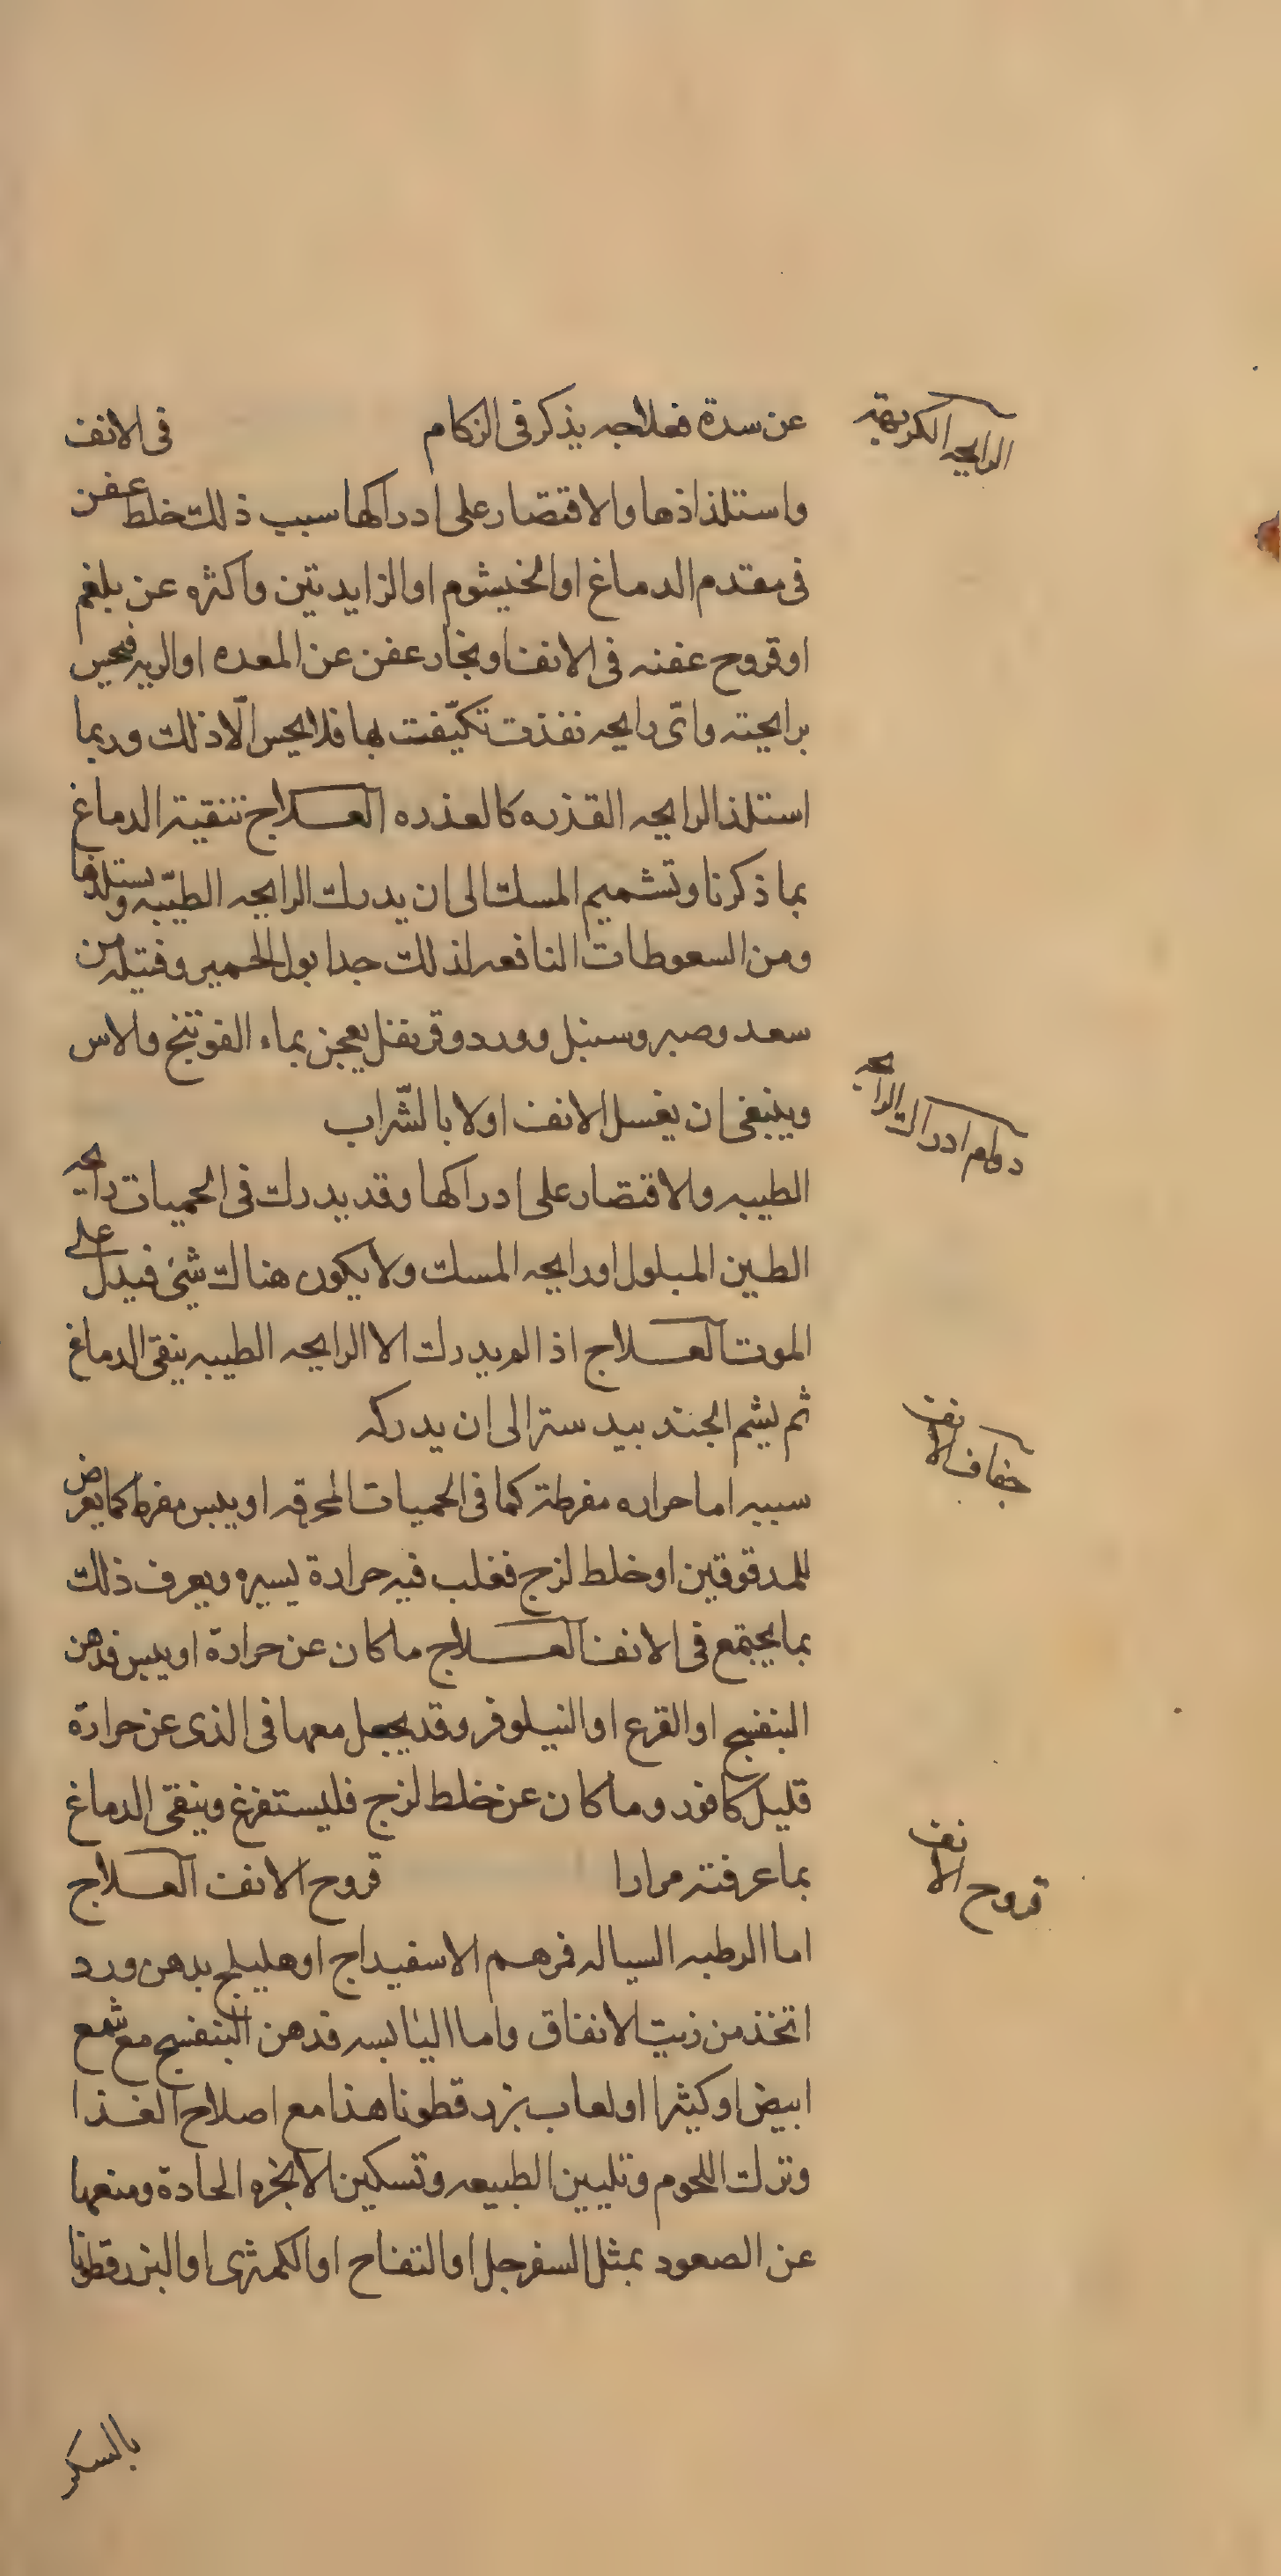 الرايحه الكريهة
عن سدة فعلاجه يذكر فى الزكام فى الانف
واستلذاذها والاقتصار على ادراكها سبب ذلك خلط عفن
فى مقدم الدماغ او الخيشوم او الزايدتين واكثره عن بلغم
او قروح عفنه فى الانف او بخار عفن عن المعده او الريه فيحس
برايحته واىّ رايحه نفذت تكيّفت بها فلا يحس الّا ذلك وربما
استلذ الرايحه القذره كالعذره العلاج تنقية الدماغ
بما ذكرنا وتشميم المسك الى ان يدرك الرايحه الطيّبه ويستلذها
ومن السعوطات النافعه لذلك جدا بول الحمير وفتيله من
سعد وصبر وسنبل وورد وقرنفل يعجن بماء الفوتنج والاس
وينبغى ان يغسل الانف اولا بالشّراب
دوام ادراك الرايحه
الطيبه والاقتصار على ادراكها وقد يدرك فى الحميات رايحه
الطين المبلول او رايحه المسك ولا يكون هناك شئ فيدل على
الموت العلاج اذا لم يدرك الا الرايحه الطيبه ينقى الدماغ
ثم يشم الجند بيدستر الى ان يدركه
جفاف الانف
سببه اما حراره مفرطة كما فى الحميات المحرقه او يبس مفرط كما يعرض
للمدقوقين او خلط لزج فغلب فيه حرارة يسيره ويعرف ذلك
بما يجتمع فى الانف العلاج ما كان عن حرارة او يبس فدهن
البنفسج او القرع او النيلوفر وقد يجعل معها فى الذى عن حرارة
قليل كافور وما كان عن خلط لزج فليستفرغ وينقى الدماغ
بما عرفته مرارا قروح الانف العلاج
قروح الانف
اما الرطبه السياله فمرهم الاسفيداج او هليلج بدهن ورد
اتخذ من زيت الانفاق واما اليابسه فدهن البنفسج مع شمع
ابيض او كثيرا او لعاب بزر قطونا هذا مع اصلاح الغذا
وترك اللحوم وتليين الطبيعه وتسكين الابخره الحادة ومنعها
عن الصعود بمثل السفرجل او التفاح او الكمثرى او البزر قطونا
بالسكر